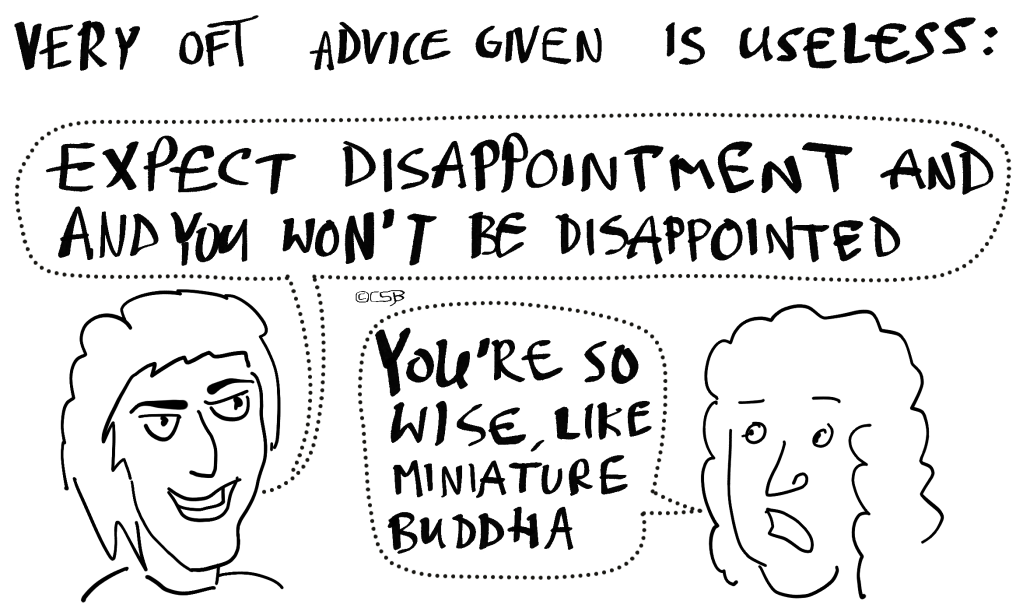 VERY OFT ADVICE GIVEN IS USELESS:
EXPECT DISAPPOINTMENT AND
AND YOU WON'T BE DISAPPOINTED
©CSB
YOU'RE SO
WISE, LIKE
MINIATURE
BUDDHA